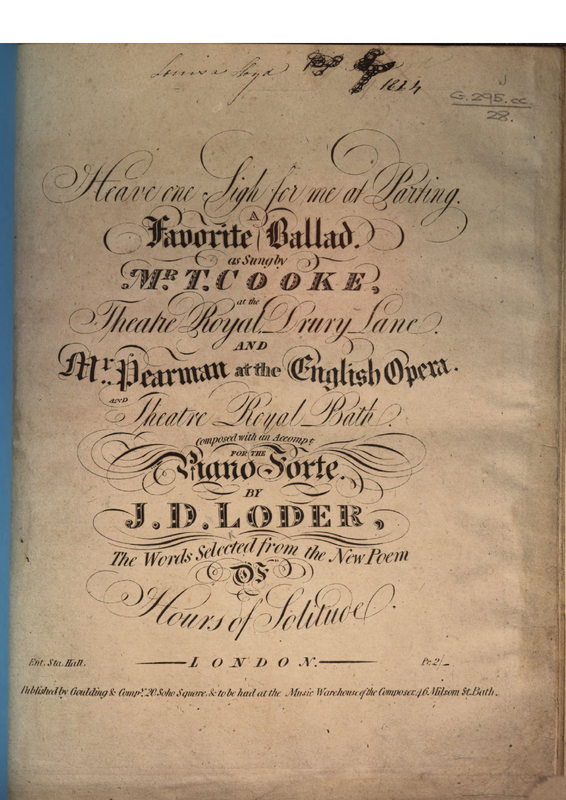 Louisa Lloyd 1824
G.295.cc.
28.
Heave one Sigh for me at Parting.
A
Favorite Ballad.
as Sung by
Mr. T. COOKE,
at the
Theatre Royal, Drury Lane.
AND
Mr. Pearman at the English Opera.
AND
Theatre Royal Bath.
Composed with an Accompt.
FOR THE
Piano Forte.
BY
J. D. LODER,
The Words Selected from the New Poem
OF
Hours of Solitude.
Ent. Sta. Hall. LONDON. Pr. 2/_
Published by Goulding & Compy. 20 Soho Square. & to be had at the Music Warehouse of the Composer. 46 Milsom St. Bath.